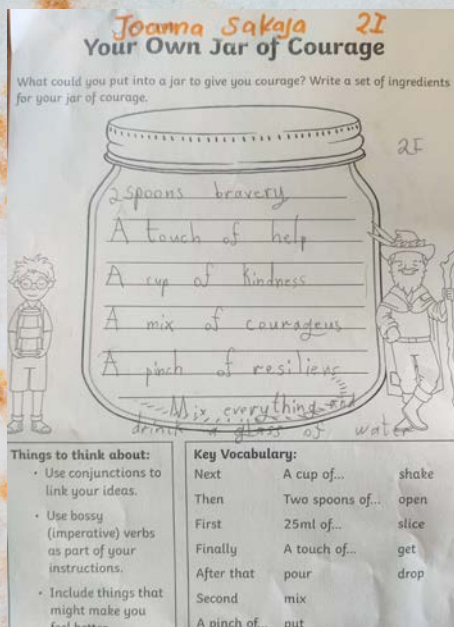 Joanna Sakaja 2I
Your Own Jar of Courage
What could you put into a jar to give you courage? Write a set of ingredients
for your jar of courage.
2I
2 spoons bravery
A touch of help
A cup of kindness
A mix of courageus
A pinch of resiliens
Mix everything and
drink a glass of water
Things to think about:
• Use conjunctions to
link your ideas.
• Use bossy
(imperative) verbs
as part of your
instructions.
• Include things that
might make you
feel better
Key Vocabulary:
Next A cup of... shake
Then Two spoons of... open
First 25ml of... slice
Finally A touch of... get
After that pour drop
Second mix
A pinch of... put